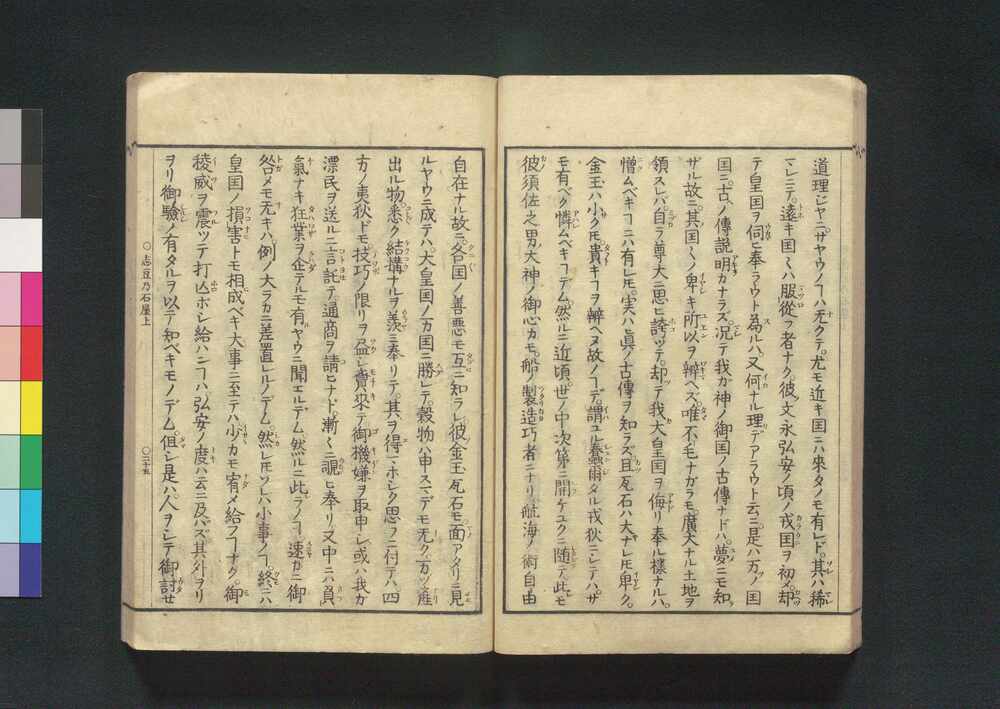 道理ヂヤニサヤウノヿハ无クテ。尤モ近キ国ニハ來タノモ有レド。其ハ稀
マレニテ。遠キ国々ハ服從フ者ナク。彼文永弘安ノ頃ノ戎国ヲ初メ。却
テ皇国ヲ伺ヒ奉ラウト為ルハ。又何ナル理デアラウト云ニ。是ハ万ツノ国
国ニ。古ノ傳說明カナラズ。况テ我ガ神ノ御国ノ古傳ナドハ。夢ニモ知
ザル故ニ。其国々ノ卑キ所以ヲ辨ヘズ。唯不毛ナガラモ。廣大ナル土地ヲ
領スレバ。自ラ尊大ニ思ヒ誇ツテ。却テ我カ大皇国ヲ侮リ奉ル樣ナルハ。
憎ムベキヿニハ有レ𪜈。実ハ眞ノ古傳ヲ知ラズ。且瓦石ハ大ナレ𪜈卑ク。
金玉ハ小ク𪜈。貴キヿヲ辨ヘヌ故ノヿデ。謂ユル蠢爾タル戎狄ニシテハ。サ
モ有ベク憐ムベキヿデム。然ルニ近頃。世ノ中次第ニ開ケユクニ随テ。此モ
彼須佐之男大神ノ御心カモ。船ノ製造巧者ニナリ。航海ノ術自由
自在ナル故ニ。各国ノ善悪モ互ニ知ラレ。彼金玉瓦石モ。面アタリニ見
ルヤウニ成テハ。大皇国ノ万国ニ勝レテ。穀物ハ申スマデモ无ク。万ヅ産
出ル物悉ク結構ナルヲ羨ミ奉リテ。其ヲ得マホシク思フニ付テハ。四
方ノ夷狄ドモ。技巧ノ限リヲ盡シ。賣來テ御機嫌ヲ取申シ。或ハ我ガ
漂民ヲ送ルニ言託テ。通商ヲ請ヒナド。漸々ニ覗ヒ奉リ。又中ニハ負
氣ナキ狂業ヲ企テルモ有ヤウニ聞エルデム。然ルニ此ラノヿ速カニ御
咎メモ无キハ。例ノ大ラカニ差置レルノデム。然レ𪜈ソレハ小事ノヿ。終ニハ
皇国ノ損害トモ相成ベキ大事ニ至テハ。少カモ宥メ給フヿナク。御
稜威ヲ震ツテ打亡ホシ給ハンヿハ。弘安ノ度ハ云ニ及バズ。其外ヲリ
ヲリ御驗ノ有タルヲ以テ知ベキモノデム。但シ是ハ人ヲシテ御討セ
志豆乃石屋上
二十五